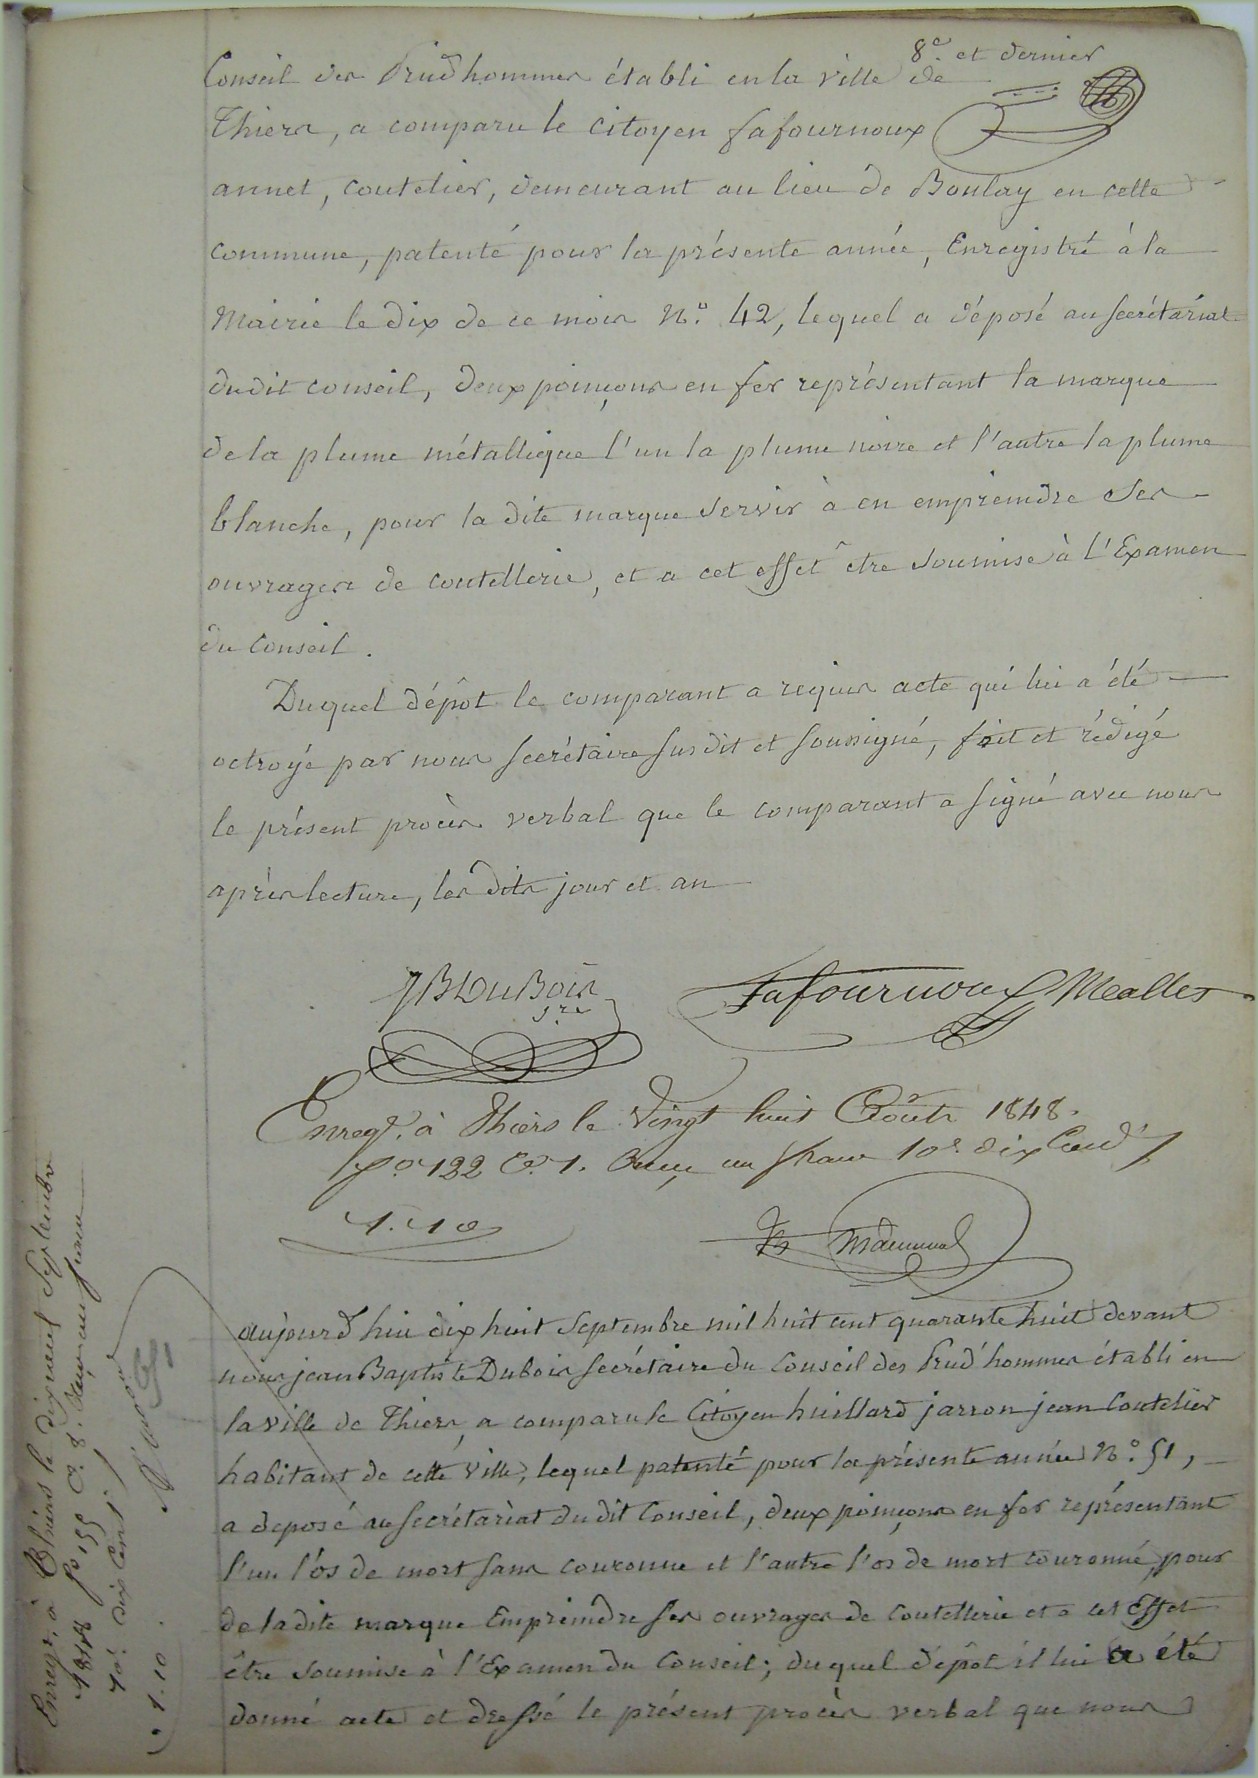 8e. et dernier
Conseil des Prud'hommes établi en la ville de
Thiers, a comparu le citoyen Fafournoux
annet, coutelier, demeurant au lieu de Boulay en cette
commune, patenté pour la présente année, Enregistré à la
Mairie le dix de ce mois No. 42, lequel a déposé au secrétariat
dudit conseil, deux poinçons en fer représentant la marque
de la plume métallique l'un la plume noire et l'autre la plume
blanche, pour la dite marque servir à en empreindre ses
ouvrages de coutellerie, et a cet effet être soumise à l'Examen
du conseil.
Duquel dépôt le comparant a requis acte qui lui a été
octroyé par nous secrétaire susdit et soussigné, fait et rédigé
le présent procès verbal que le comparant a signé avec nous
après lecture, les dits jour et an
JB Dubois Fafournoux Mallet
sre
Enregé. à Thiers le vingt huit Août 1848.
fo. 122 Co. 1. Reçu un franc 10c. dix Cent
1.10
aujourd'hui dix huit Septembre mil huit cent quarante huit devant
nous jean Baptiste Dubois secrétaire du Conseil des Prud'hommes établi en
la ville de Thiers, a comparu le Citoyen huillard jarron jean Coutelier
habitant de cette ville, lequel patenté pour la présente année No. 51,
a déposé au secrétariat du dit Conseil, deux poinçons en fer représentant
l'un l'os de mort sans couronne et l'autre l'os de mort couronné, pour
de la dite marque Empreindre ses ouvrages de Coutellerie et a cet Effet
être soumise à l'Examen du Conseil; duquel dépôt il lui a été
donné acte et dressé le présent procès verbal que nous
Enregé. à Thiers le dixneuf Septembre
1848 fo 155 Co. 8. Reçu un franc
10c. dix Cent.
1.10.